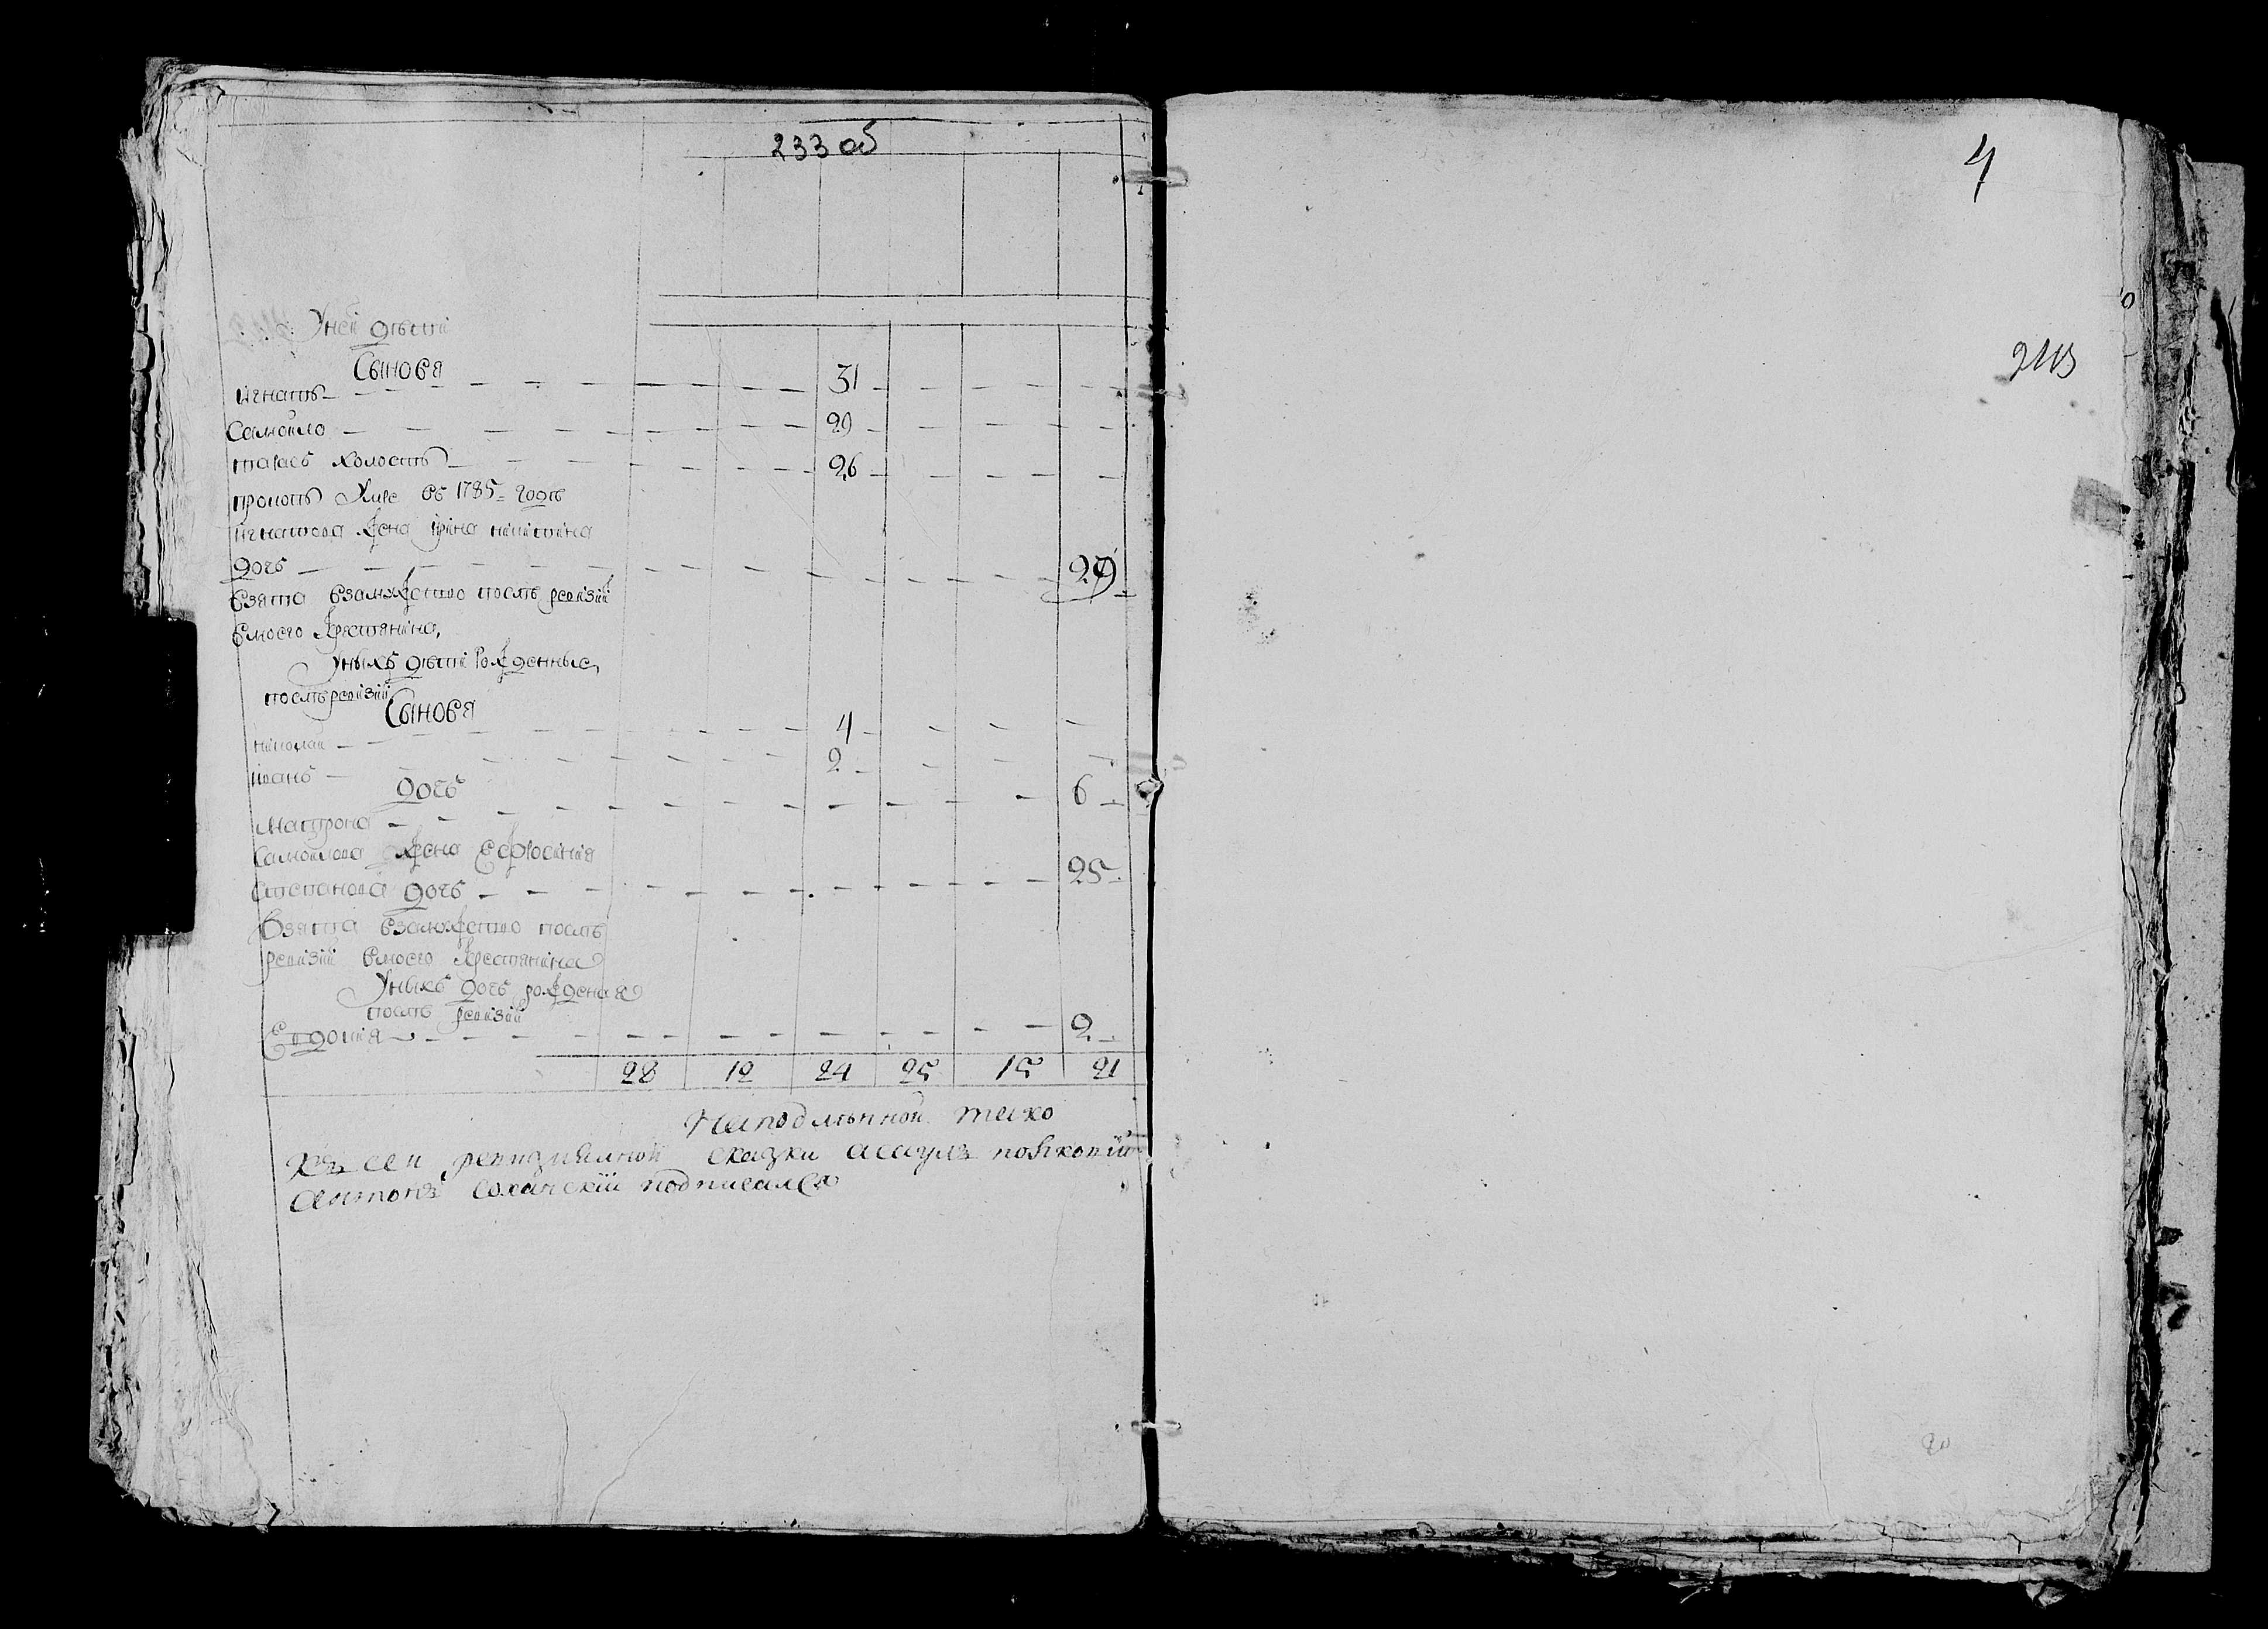 233 об
У ней дѣти
Сыновя
игнатъ 31
Самоило 29
тарасъ холостъ 26
 Умре въ 1785 годѣ
игнатова жена ірина никитина
дочь 29
Взята взамужество послѣ ревизіи
вмоего крестянина,
Уныхъ дѣти рожденные,
послѣ ревизіи
Сыновя
николай 4
иванъ 2
дочь
Матрона 6
Самоилова жена Ефросинія
степанова дочь 25
Взята взамужество послѣ
ревизіи вмоего крестянина
Уныхъ дочь рожденая
послѣ ревизіи
Евдокія 2
28 12 24 25 15 21
На подлѣнной тако
Къ сеи ревизиалной сказки асаулъ полковій
антонъ соханскій подписался
4